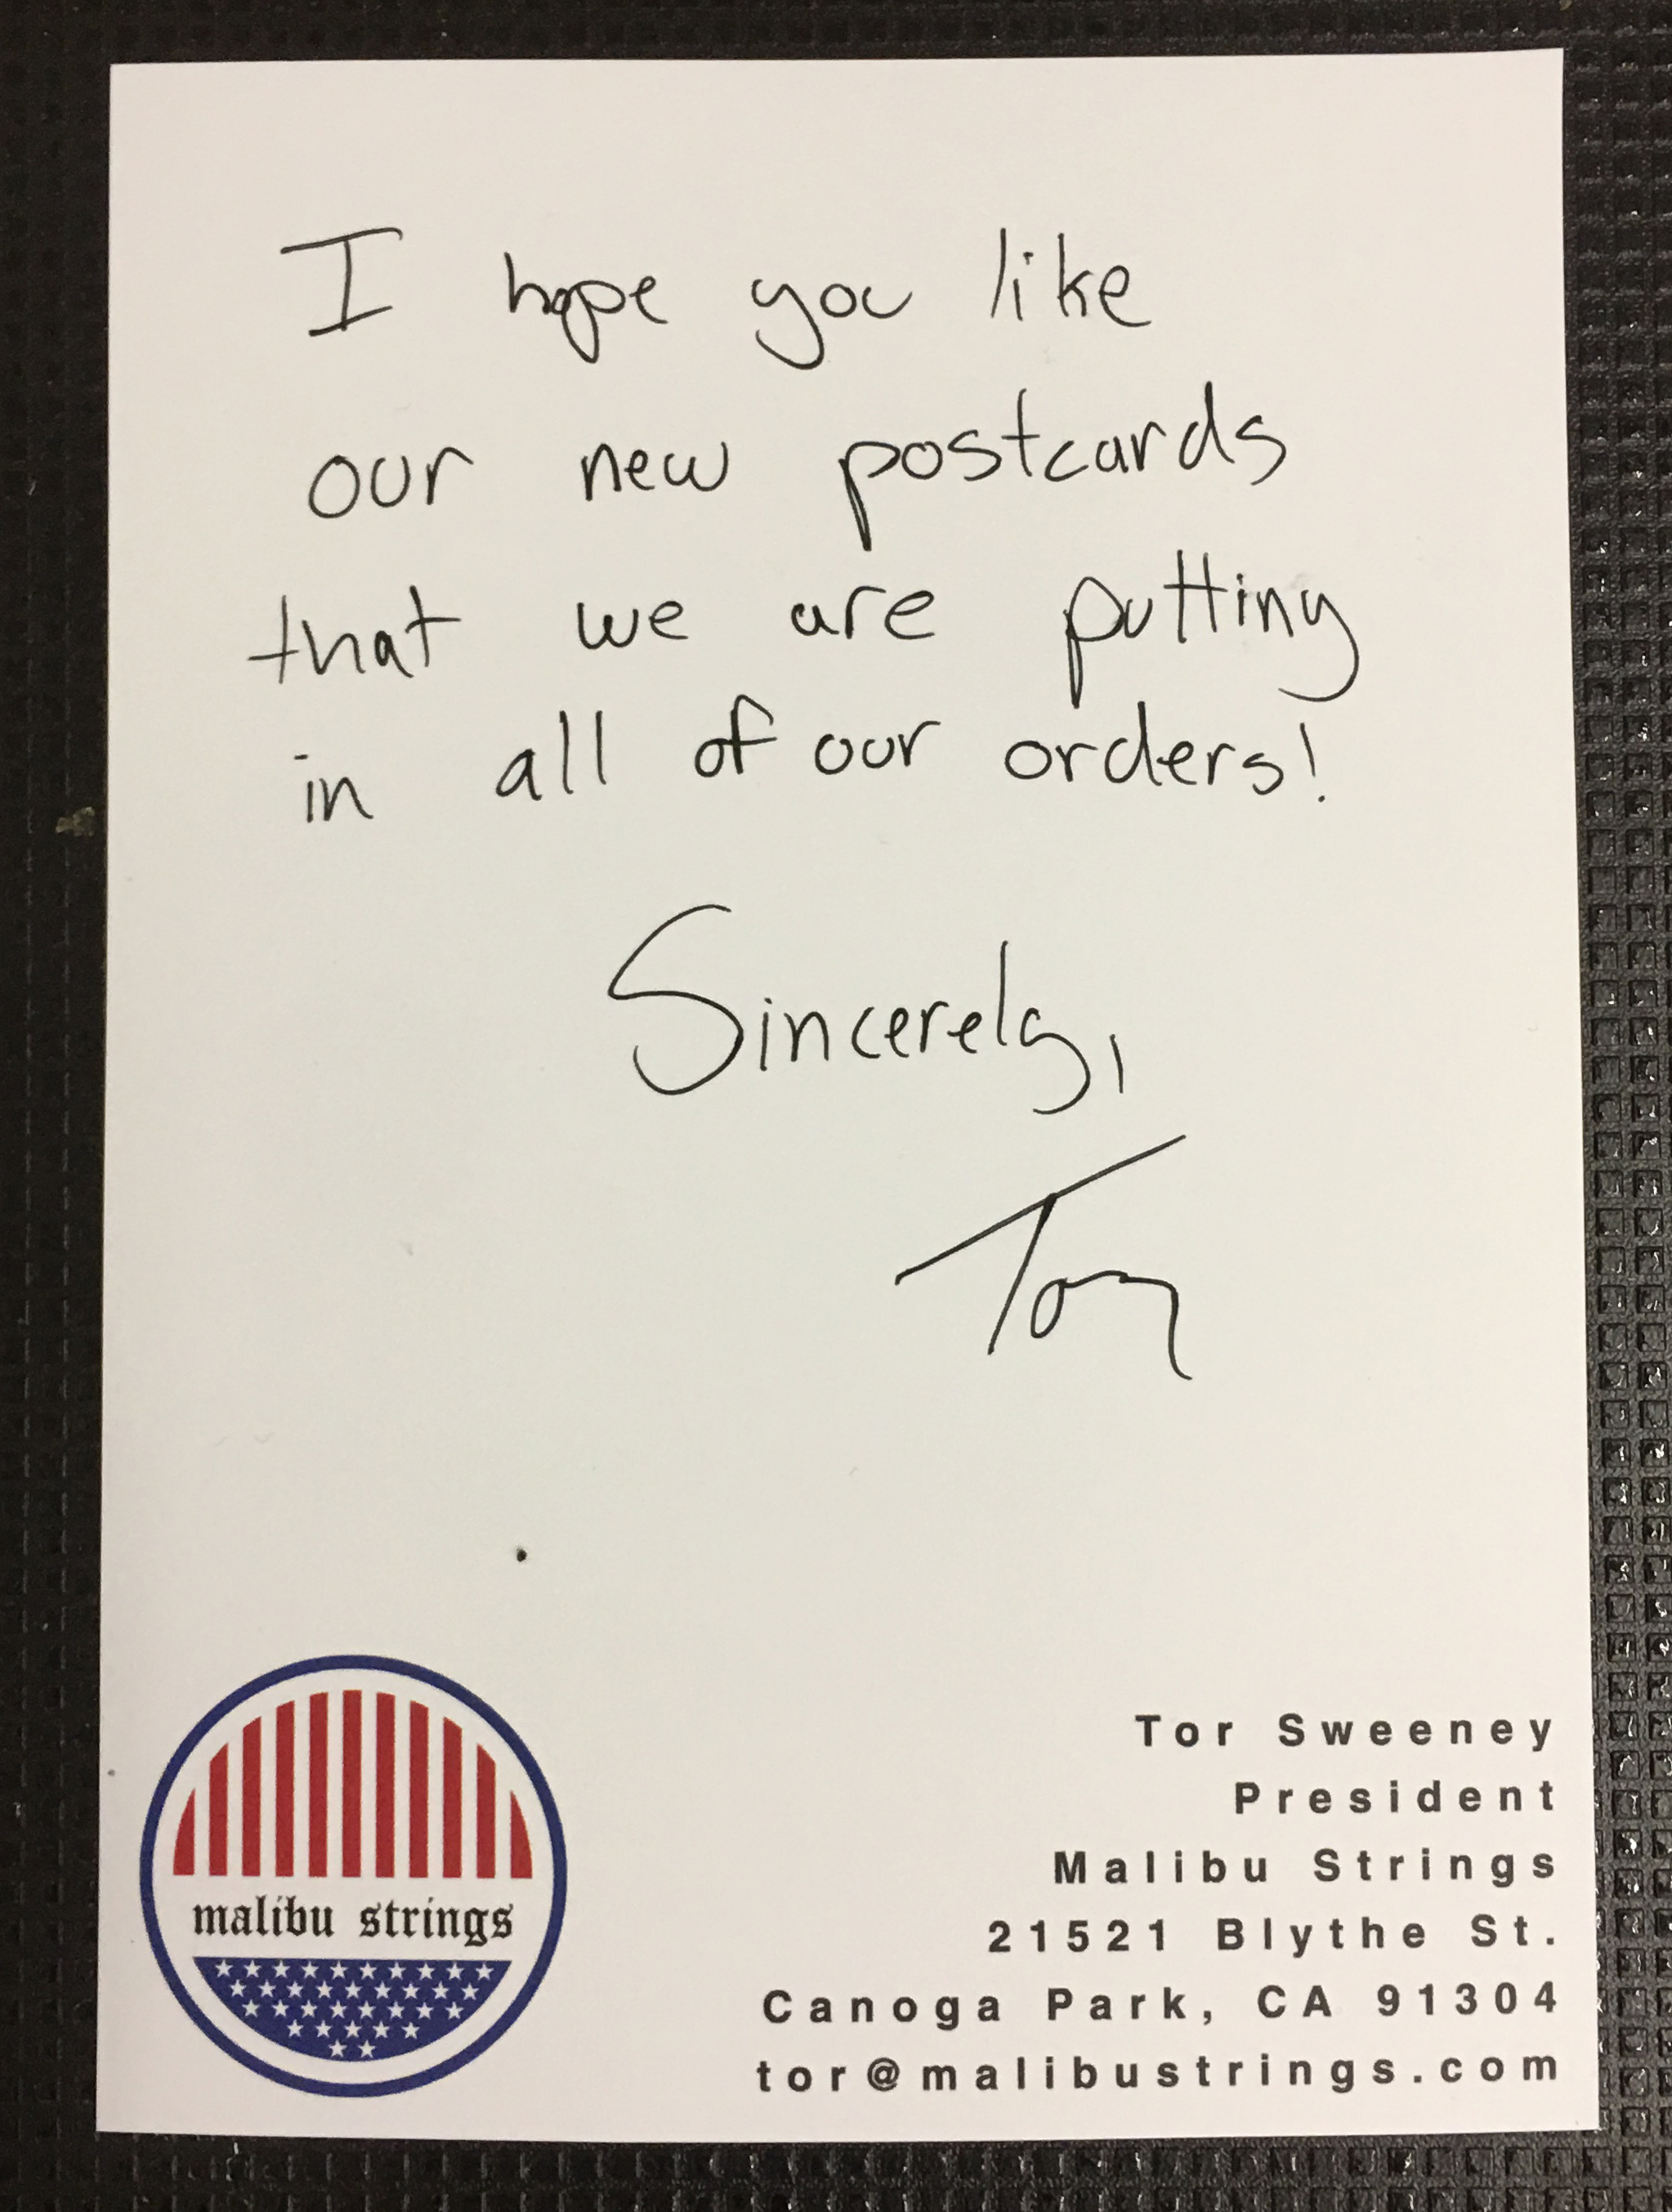 I hope you like
our new postcards
that we are putting
in all of our orders!
Sincerely,
Tor
malibu strings
Tor Sweeney
President
Malibu Strings
21521 Blythe St.
Canoga Park, CA 91304
tor@malibustrings.com